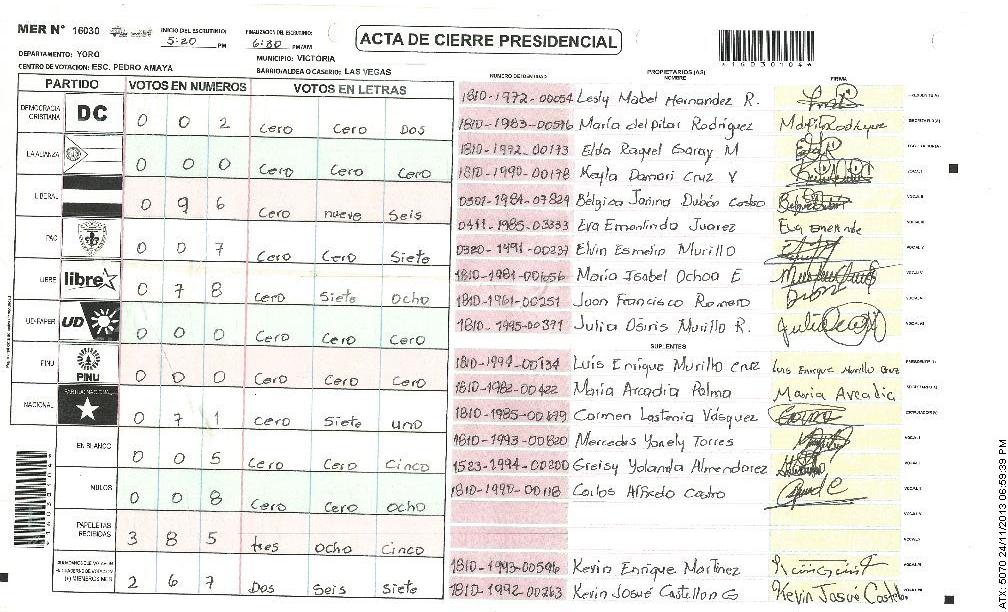 MER N° 16030
INICIO DEL ESCRUTINIO: 5:20 PM
FINALIZACION DEL ESCRUTINIO: 6:30 PM/AM
ACTA DE CIERRE PRESIDENCIAL
DEPARTAMENTO: YORO
MUNICIPIO: VICTORIA
CENTRO DE VOTACION: ESC. PEDRO AMAYA
BARRIO/ALDEA O CASERIO: LAS VEGAS
PARTIDO VOTOS EN NUMEROS VOTOS EN LETRAS
DEMOCRACIA CRISTIANA DC 0 0 2 cero cero Dos
LA ALIANZA 0 0 0 cero cero cero
LIBERAL 0 9 6 cero nueve seis
PAC 0 0 7 cero cero siete
LIBRE libre 0 7 8 cero siete ocho
UD-FAPER UD 0 0 0 cero cero cero
PINU PINU 0 0 0 cero cero cero
NACIONAL 0 7 1 cero siete uno
EN BLANCO 0 0 5 cero cero cinco
NULOS 0 0 8 cero cero ocho
PAPELETAS RECIBIDAS 3 8 5 tres ocho cinco
2 6 7 Dos seis siete
NUMERO DE IDENTIDAD PROPIETARIOS (AS) NOMBRE FIRMA
1810-1972-00054 Lesly Mabel Hernandez R.
1810-1983-00516 María del Pilar Rodríguez
1810-1992-00193 Elda Raquel Garay M
1810-1990-00178 Keyla Damari Cruz V
0501-1984-07829 Bélgica Janina Dubón Castro
0411-1985-03333 Eva Emerlinda Juarez
0320-1991-00237 Elvin Esmelin Murillo
1810-1981-00656 María Isabel Ochoa E
1810-1961-00251 Juan Francisco Romero
1810-1995-00371 Julia Osiris Murillo R.
SUPLENTES
1810-1994-00134 Luis Enrique Murillo cruz Luis Enrique Murillo Cruz
1810-1982-00422 María Arcadia Palma Maria Arcadia
1810-1985-00679 Carmen Lastenia Vásquez
1810-1993-00820 Mercedes Yanely Torres
1523-1994-00200 Greisy Yolanda Almendarez
1810-1990-00118 Carlos Alfredo Castro
1810-1993-00596 Kevin Enrique Martinez
1810-1992-00263 Kevin Josué Castellon G Kevin Josue Castellon
ATX-5070 24/11/2013 06:59:39 PM